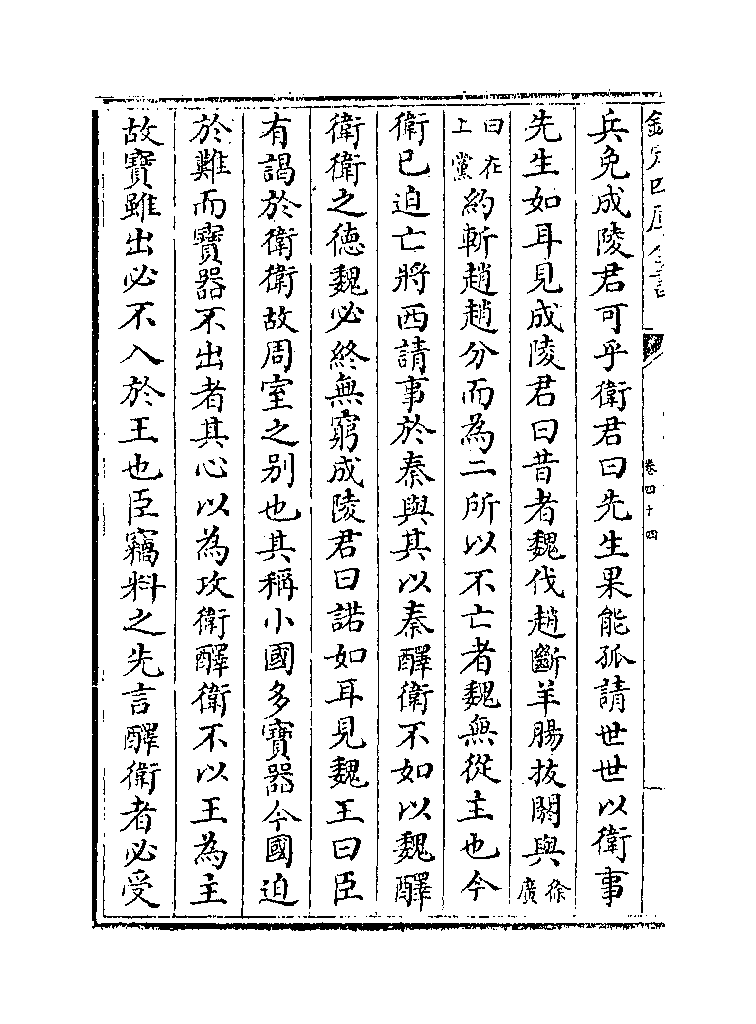 欽定四庫全書
卷四十四
兵免成陵君可乎衛君曰先生果能孤請世世以衛事
先生如耳見成陵君曰昔者魏伐趙斷羊腸拔閼與徐廣
曰在上黨約斬趙趙分而為二所以不亡者魏無從主也今
衛已迫亡將西請事於秦與其以秦醳衛不如以魏醳
衛衛之徳魏必終無窮成陵君曰諾如耳見魏王曰臣
有謁於衛衛故周室之别也其稱小國多寶器今國迫
於難而寶器不出者其心以為攻衛醳衛不以王為主
故寶雖出必不入於王也臣竊料之先言醳衛者必受